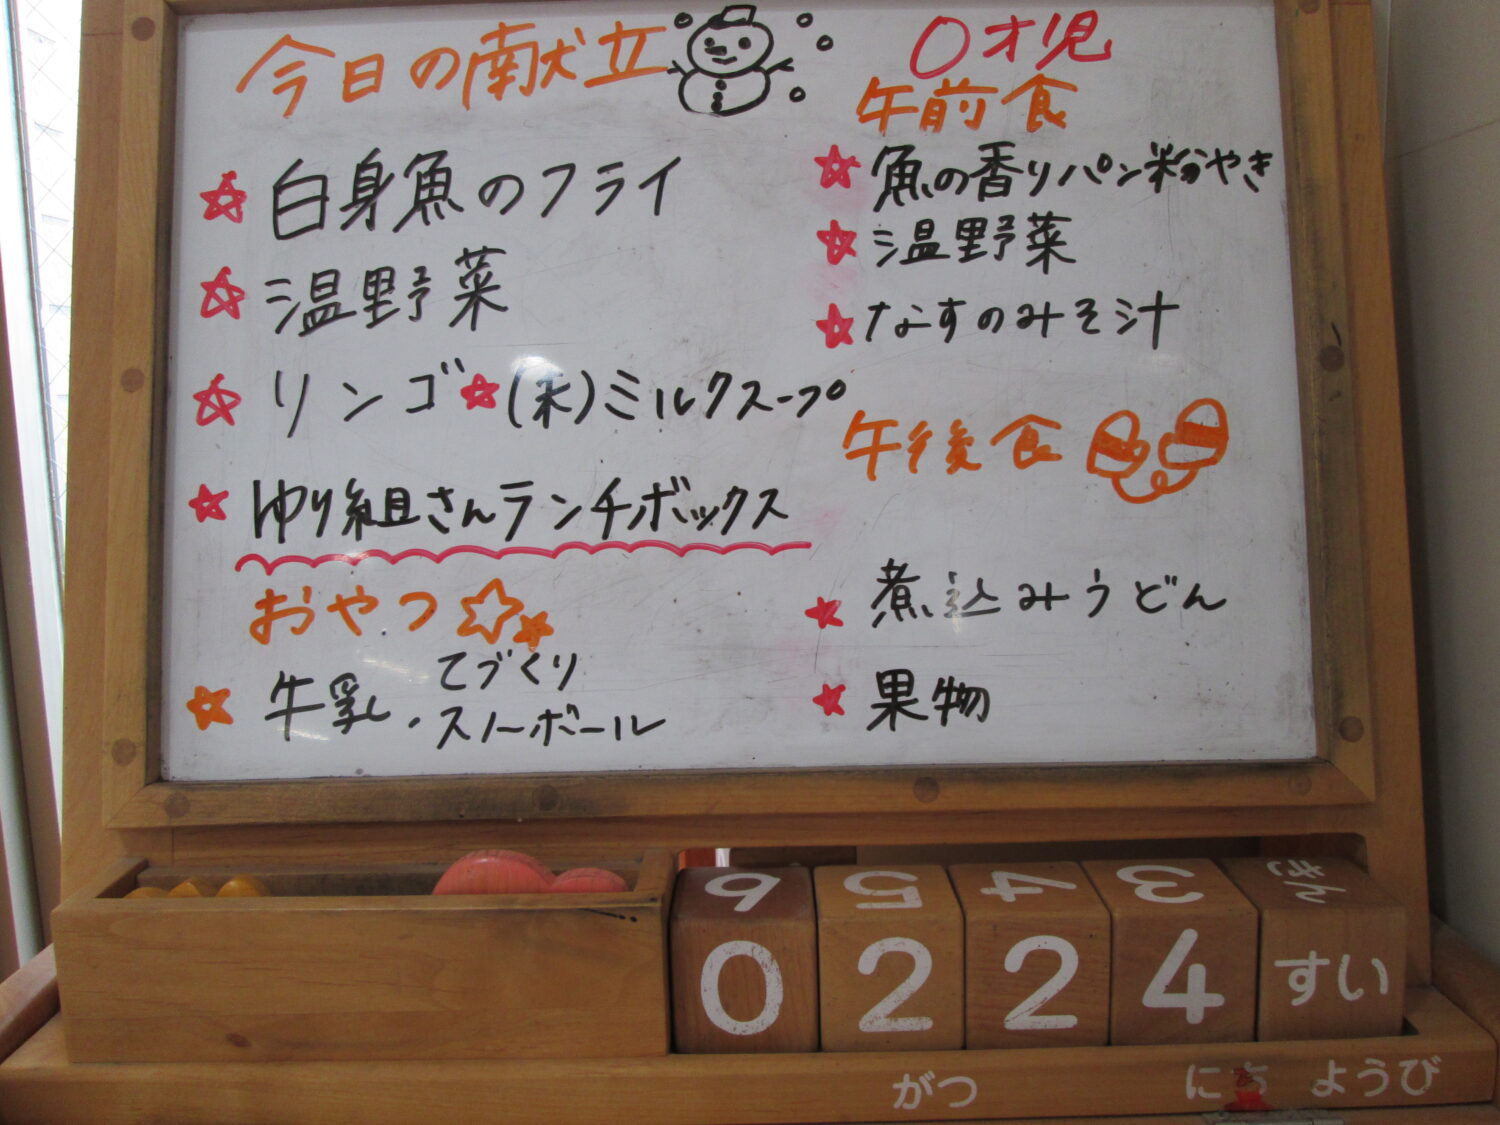 今日の献立
白身魚のフライ
温野菜
リンゴ (未)ミルクスープ
ゆり組さんランチボックス
おやつ
牛乳・てづくり
スノーボール
0才児
午前食
魚の香りパン粉やき
温野菜
なすのみそ汁
午後食
煮込みうどん
果物
6 5 4 3 きん
0 2 2 4 すい
がつ にち ようび